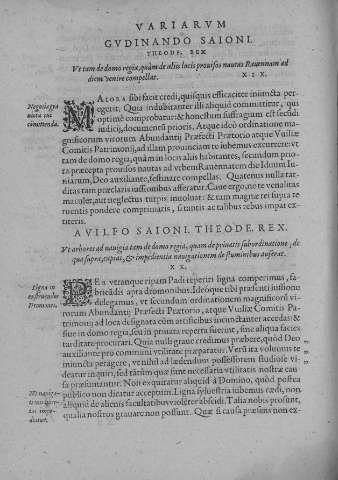 VARIARVM
GVDINANDO SAIONI.
THEODE, REX
Vt tam de domo regia, quàm de aliis locis prouisos nautas Rauennam ad
diem venire compellat. XIX.
MAIORA sibi facit credi, quisquis efficaciter iniuncta per-
egerit. Quia indubitanter illi aliquid committitur, qui
optimè comprobatur: & honestum suffragium est secundi
iudicij, documentū prioris. Atque ideò ordinatione ma-
gnificorum virorum Abundantij Præfecti Prætorio atque Vuiliæ
Comitis Patrimonij, ad illam prouinciam te iubemus excurrere: vt
tam de domo regia, quàm in locis aliis habitantes, secundum prio-
ra præcepta prouisos nautas ad vrbem Rauennatem die Iduum Iu-
niarum, Deo auxiliante, festinare compellas. Quatenus nulla tar-
ditas tam præclaris iussionibus afferatur. Caue ergo, ne te venalitas
maculet, aut neglectus turpis inuoluat: & tam magnæ rei supra te
ruentis pondere comprimaris, si tantis actalibus rebus impar ex-
titeris.
AVILFO SAIONI. THEODE. REX.
Vt arbores ad nauigia tam de domo regia, quam de priuatis sub ordinatione, de
qua supra, capiat, & impedientia nauigationem de fluminibus auferat.
XX.
PER vtranque ripam Padi reperiri ligna comperimus, fa-
bricādis apta dromonibus. Ideoque tibi præsenti iussione
delegamus, vt secundum ordinationem magnificorū vi-
rorum Abundantij Præfecti Prætorio, atque Vuiliæ Comitis Pa-
trimonij ad loca designata cùm artificibus iniunctanter accedas: &
siue in domo regia, seu in priuata reperta fuerint, sine aliqua facias
tarditate procurari. Quia nulli graue credimus præbere, quòd Deo
auxiliante pro communi vtilitate præparatur. Verùm ita volumus te
iniuncta peragere, vt nihil ad lædendum possessorem studiosè vi-
deatur inquiri, sed tātùm quæ sunt necessaria vtilitatis nostræ cau-
sa præsumantur. Non exquiratur aliquid à Domino, quòd postea
publico non dicatur acceptum. Ligna syluestria iubemus cædi, non
aliquid de alienis facultatibus violēter abscidi. Talia nobis prosunt,
qualia nostros grauare non possunt. Quæ si causa præsens non ex-